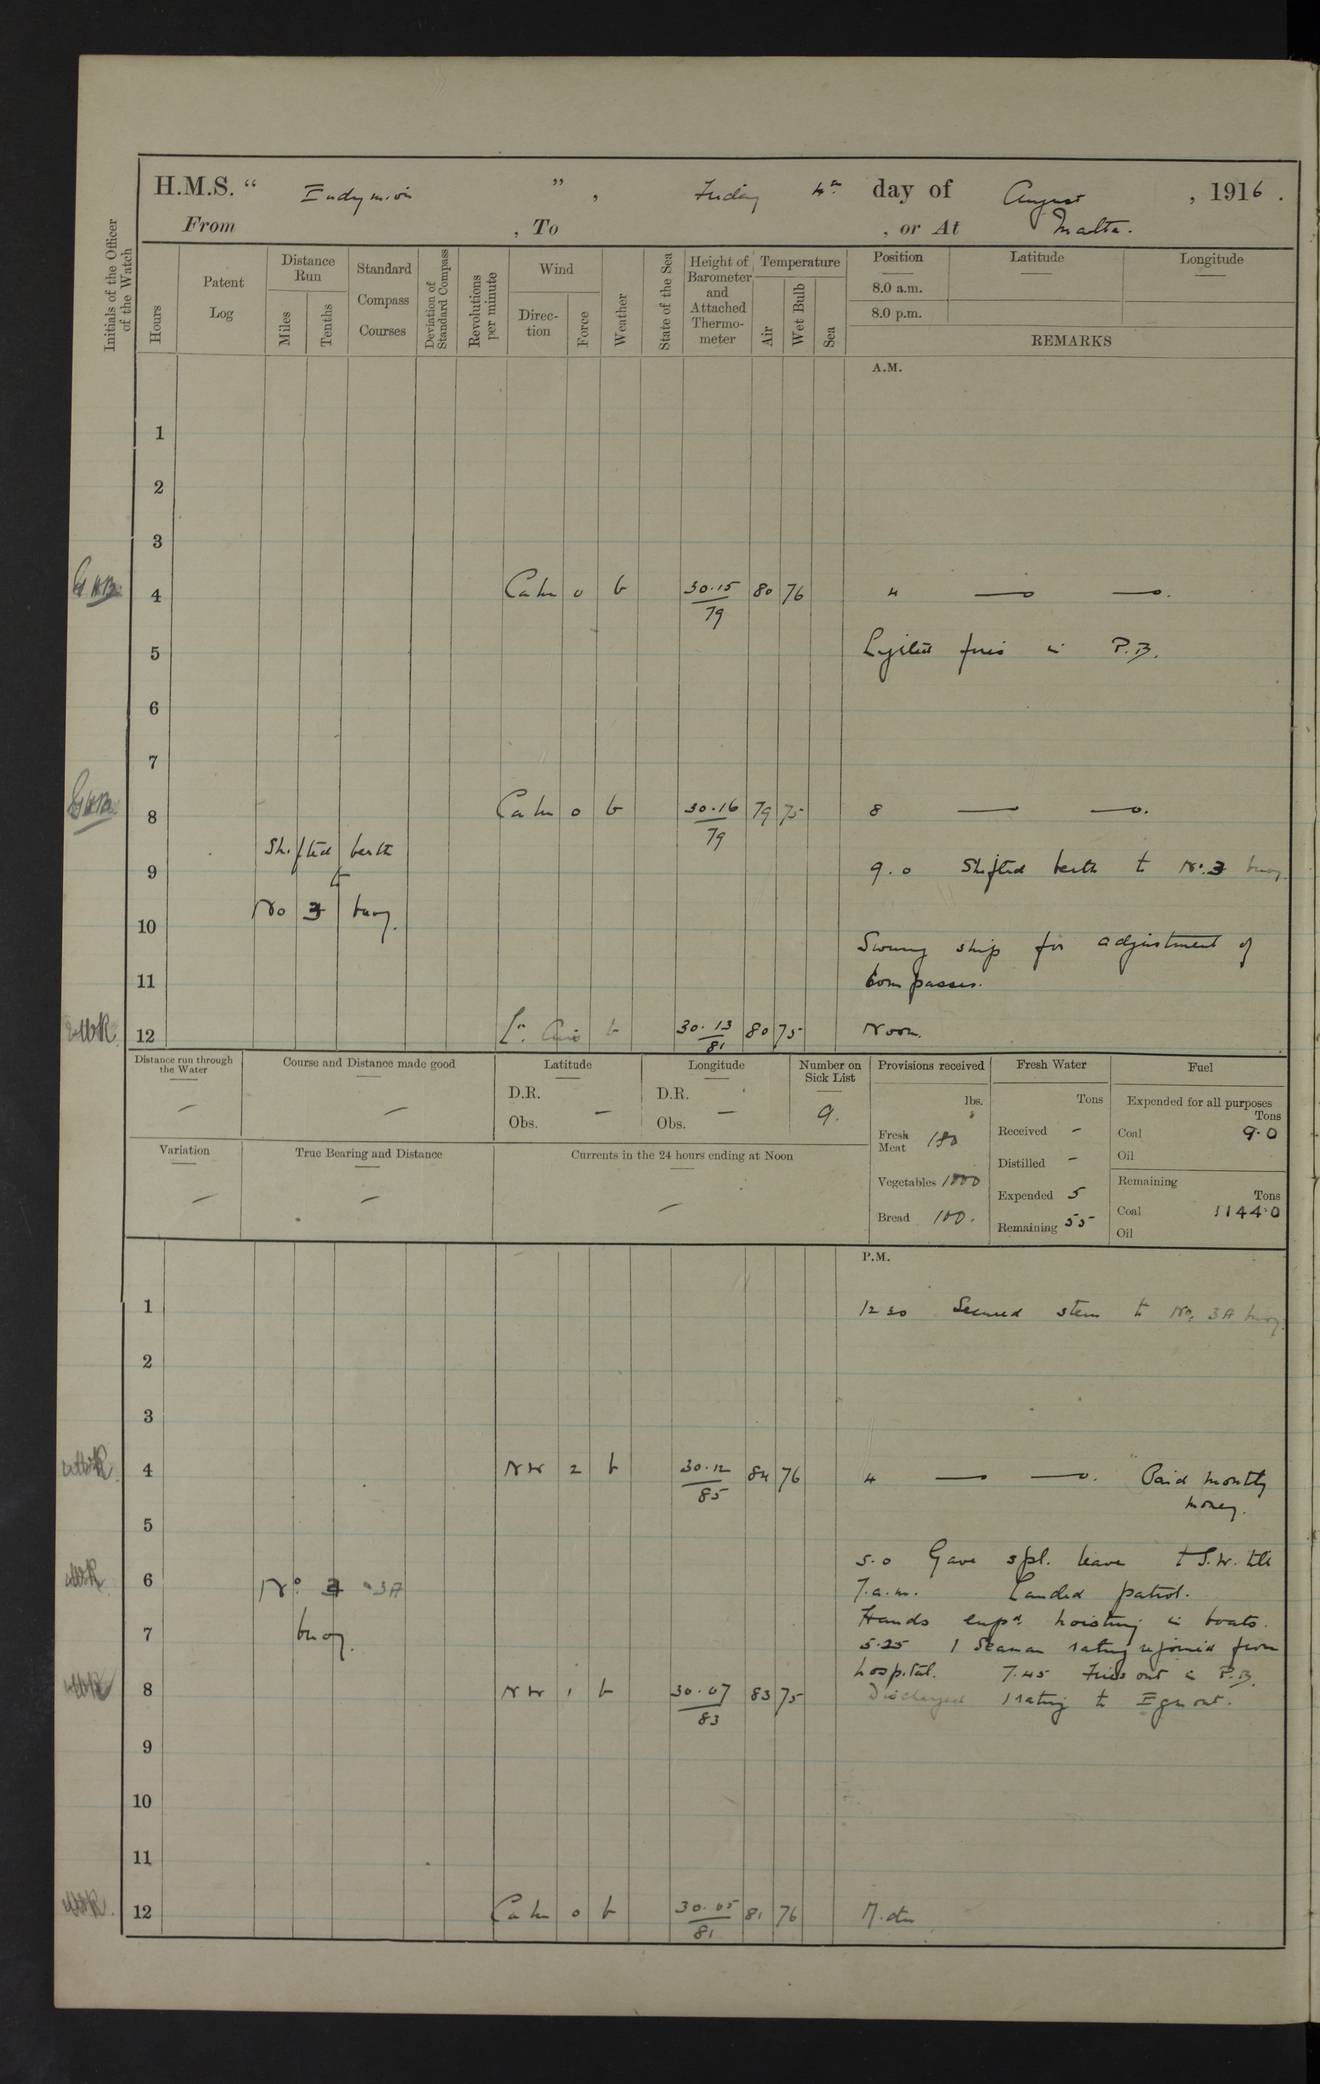 H.M.S. “ Endymion ” , Friday 4th day of August , 1916 .
From , To , or At Malta.
Initials of the Officer of the Watch
Hours
Patent Log
Distance Run
Miles
Tenths
Standard Compass Courses
Deviation of Standard Compass
Revolutions per minute
Wind
Direction
Force
Weather
State of the Sea
Height of Barometer and Attached Thermometer
Temperature
Air
Wet Bulb
Sea
Position Latitude Longitude
8.0 a.m.
8.0 p.m.
REMARKS
A.M.
1
2
3
4 Calm 0 b 30.15 80 76 4 — —.
79
5 Lighted fires in P.B.
6
7
8 Calm 0 b 30.16 79 75 8 — —.
79
Shifted berth
9 to 9.0 Shifted berth to No. 3 buoy.
No 3 buoy.
10 Swung ship for adjustment of
11 compasses.
12 Lt. Airs b 30.13 80 75 Noon.
81
Distance run through the Water
—
Course and Distance made good
—
Latitude
D.R.
Obs. —
Longitude
D.R.
Obs. —
Number on Sick List
9.
Provisions received
lbs.
Fresh Meat 180
Vegetables 1000
Bread 100.
Fresh Water
Tons
Received -
Distilled -
Expended 5
Remaining 55
Fuel
Expended for all purposes
Tons
Coal 9.0
Oil
Remaining
Tons
Coal 1144.0
Oil
Variation
—
True Bearing and Distance
—
Currents in the 24 hours ending at Noon
—
P.M.
1 12 30 Secured stern to No. 3A buoy.
2
3
4 NW 2 b 30.12 84 76 4 — —. Paid monthly
85 money.
5
5.0 Gave spl. leave to S.W. till
6 No. 3 3A 7.a.m. Landed patrol.
Hands empd. hoisting in boats.
7 buoy. 5.25 1 Seaman rating rejoined from
hospital. 7.45 Fires out in P.B.
8 NW 1 b 30.07 83 75 Discharged 1 rating to Egmont.
83
9
10
11
12 Calm 0 b 30.05 81 76 Mdt.
81